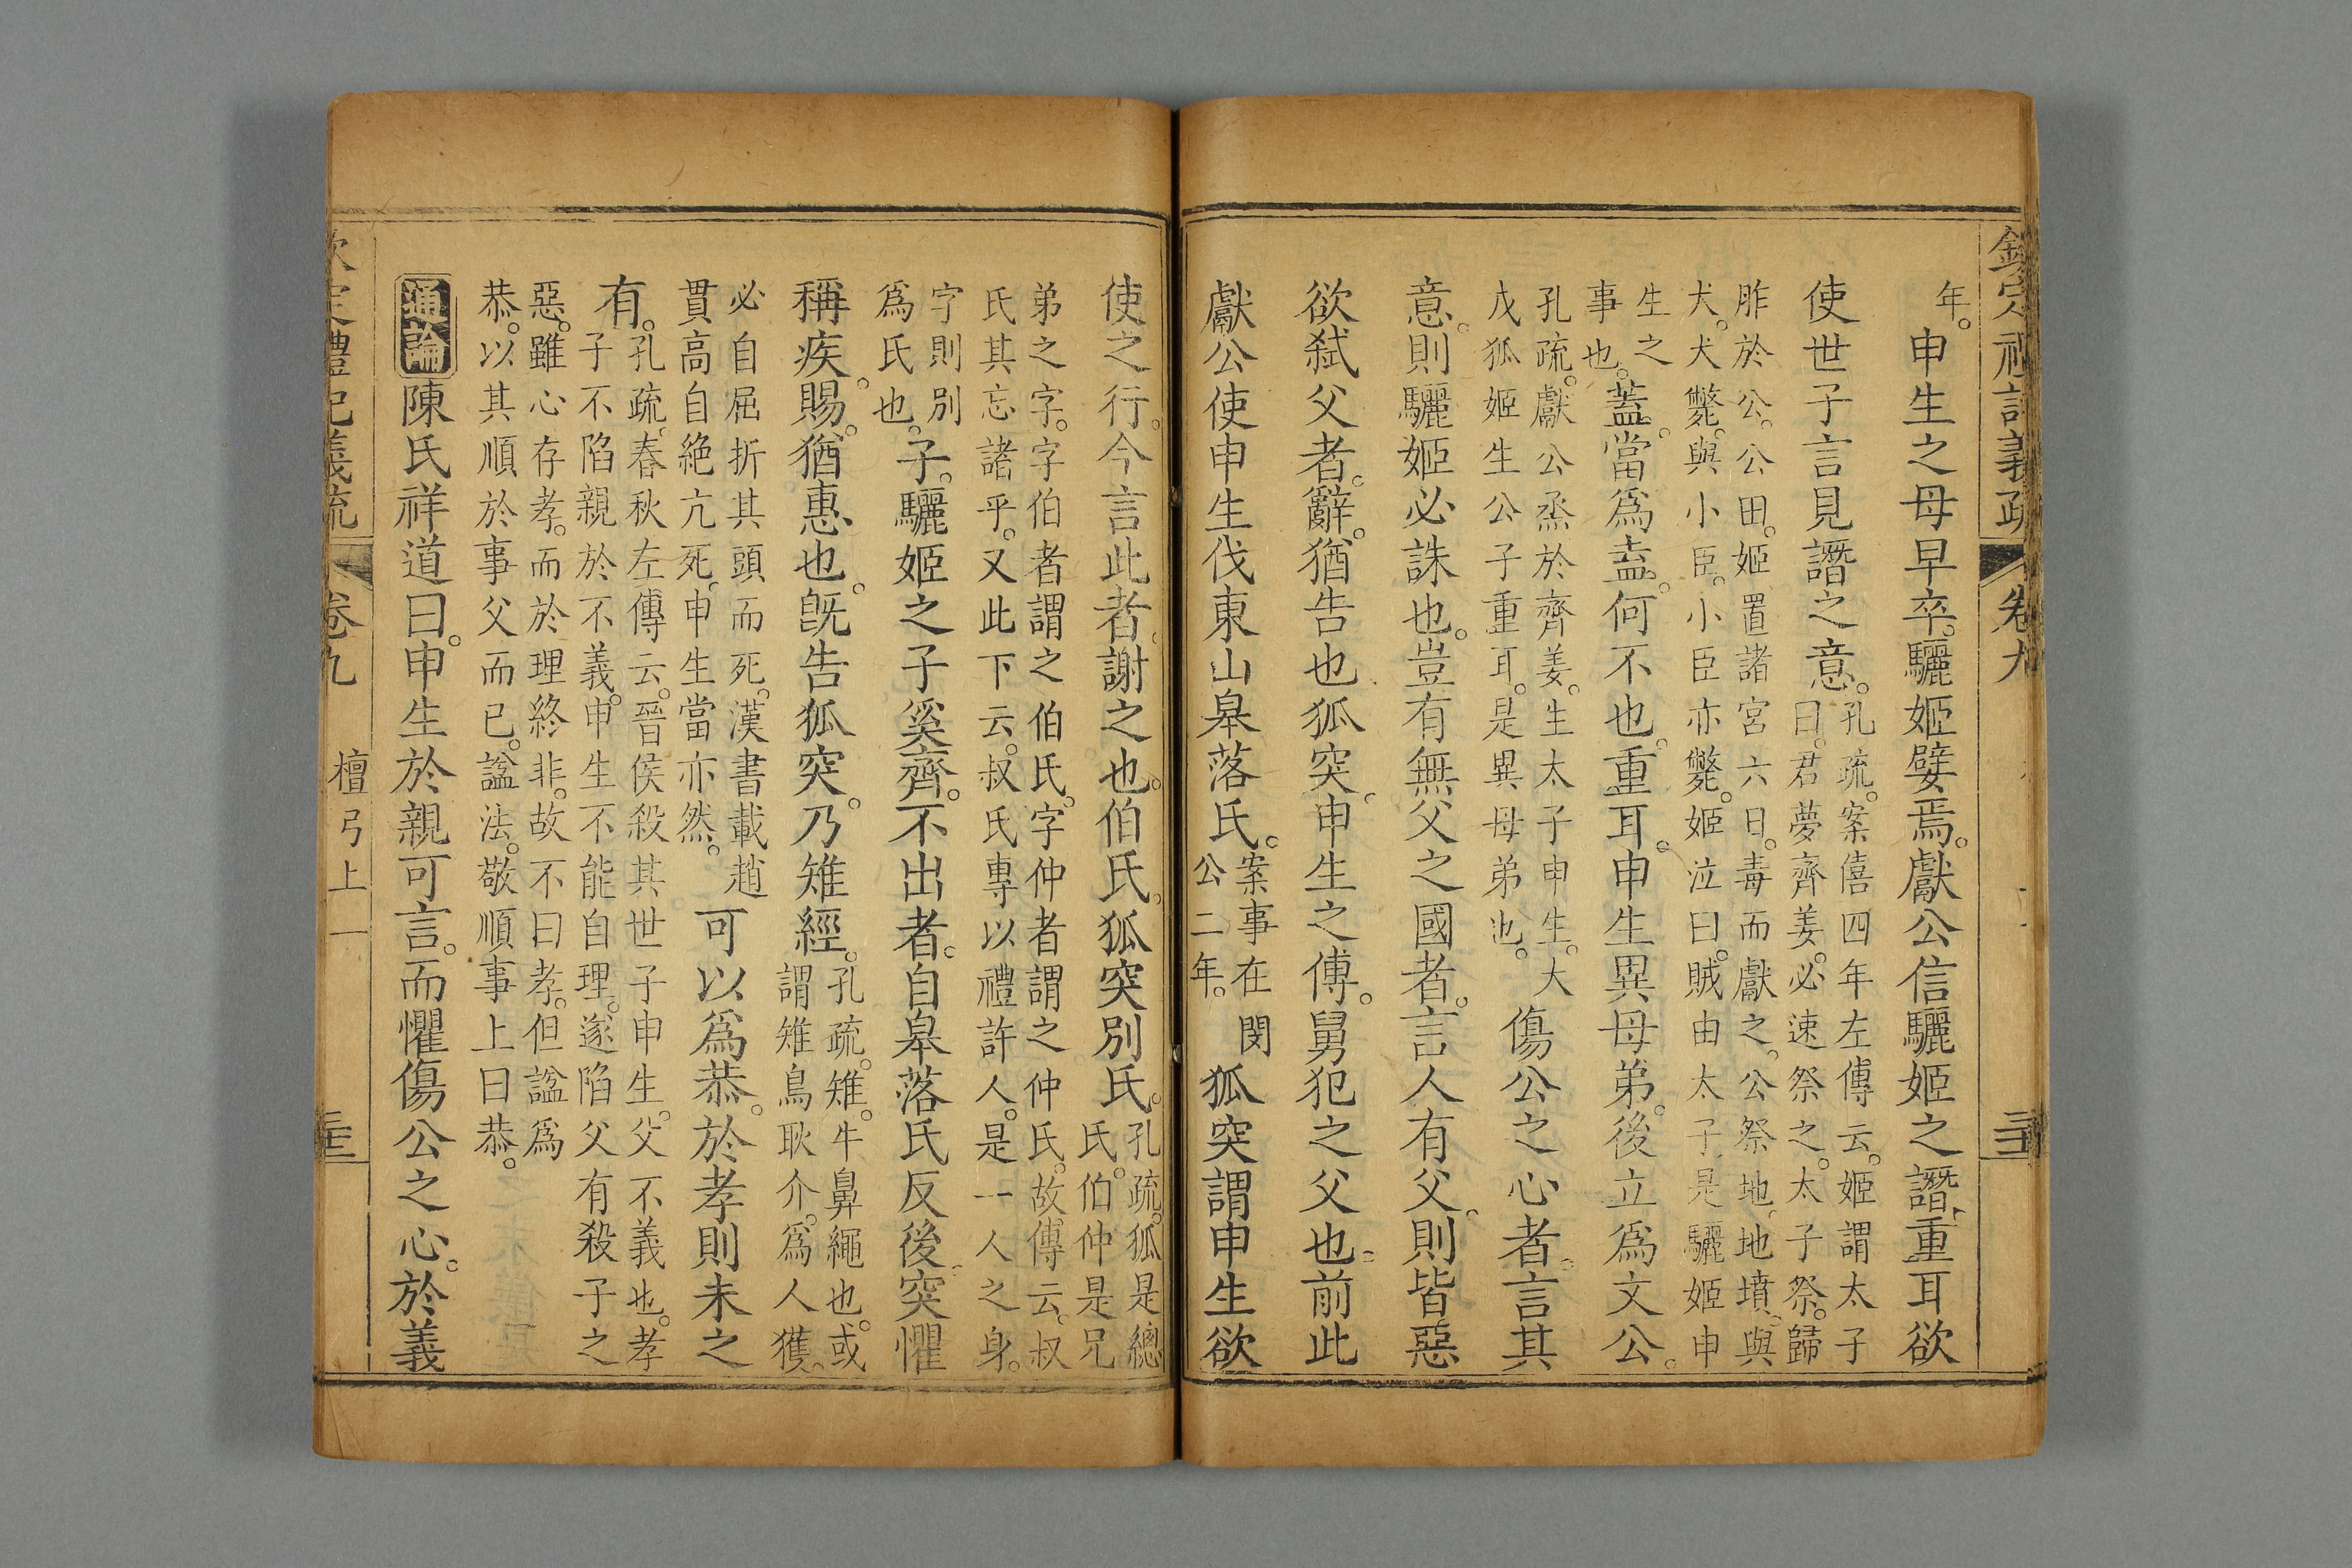 欽定禮記義疏 卷九
年。申生之母早卒。驪姬嬖焉。獻公信驪姬之譖。重耳欲
使世子言見譖之意。孔疏。案僖四年左傳云。姬謂太子
曰。君夢齊姜。必速祭之。太子祭。歸
胙於公。公田。姬置諸宮六日。毒而獻之。公祭地。地墳。與
犬。犬斃。與小臣。小臣亦斃。姬泣曰。賊由太子。是驪姬申
生之
事也。蓋。當爲盍。何不也。重耳。申生異母弟。後立爲文公。
孔疏。獻公烝於齊姜。生太子申生。大
戎狐姬生公子重耳。是異母弟也。傷公之心者。言其
意。則驪姬必誅也。豈有無父之國者。言人有父。則皆惡
欲弒父者。辭。猶告也。狐突。申生之傅。舅犯之父也。前此
獻公使申生伐東山皋落氏。案事在閔
公二年。狐突謂申生欲
使之行。今言此者。謝之也。伯氏。狐突別氏。孔疏。狐是總
氏。伯仲是兄
弟之字。字伯者謂之伯氏。字仲者謂之仲氏。故傳云。叔
氏其忘諸乎。又此下云。叔氏專以禮許人。是一人之身。
字則別
爲氏也。子。驪姬之子奚齊。不出者。自皋落氏反後。突懼
稱疾。賜。猶惠也。旣告狐突。乃雉經。孔疏。雉。牛鼻繩也。或
謂雉鳥耿介。爲人獲。
必自屈折其頭而死。漢書載趙
貫高自絕亢死。申生當亦然。可以爲恭。於孝則未之
有。孔疏。春秋左傳云。晉侯殺其世子申生。父不義也。孝
子不陷親於不義。申生不能自理。遂陷父有殺子之
惡。雖心存孝。而於理終非。故不曰孝。但諡爲
恭。以其順於事父而已。諡法。敬順事上曰恭。
通論 陳氏祥道曰。申生於親可言。而懼傷公之心。於義
欽定禮記義疏 卷九 檀弓上一